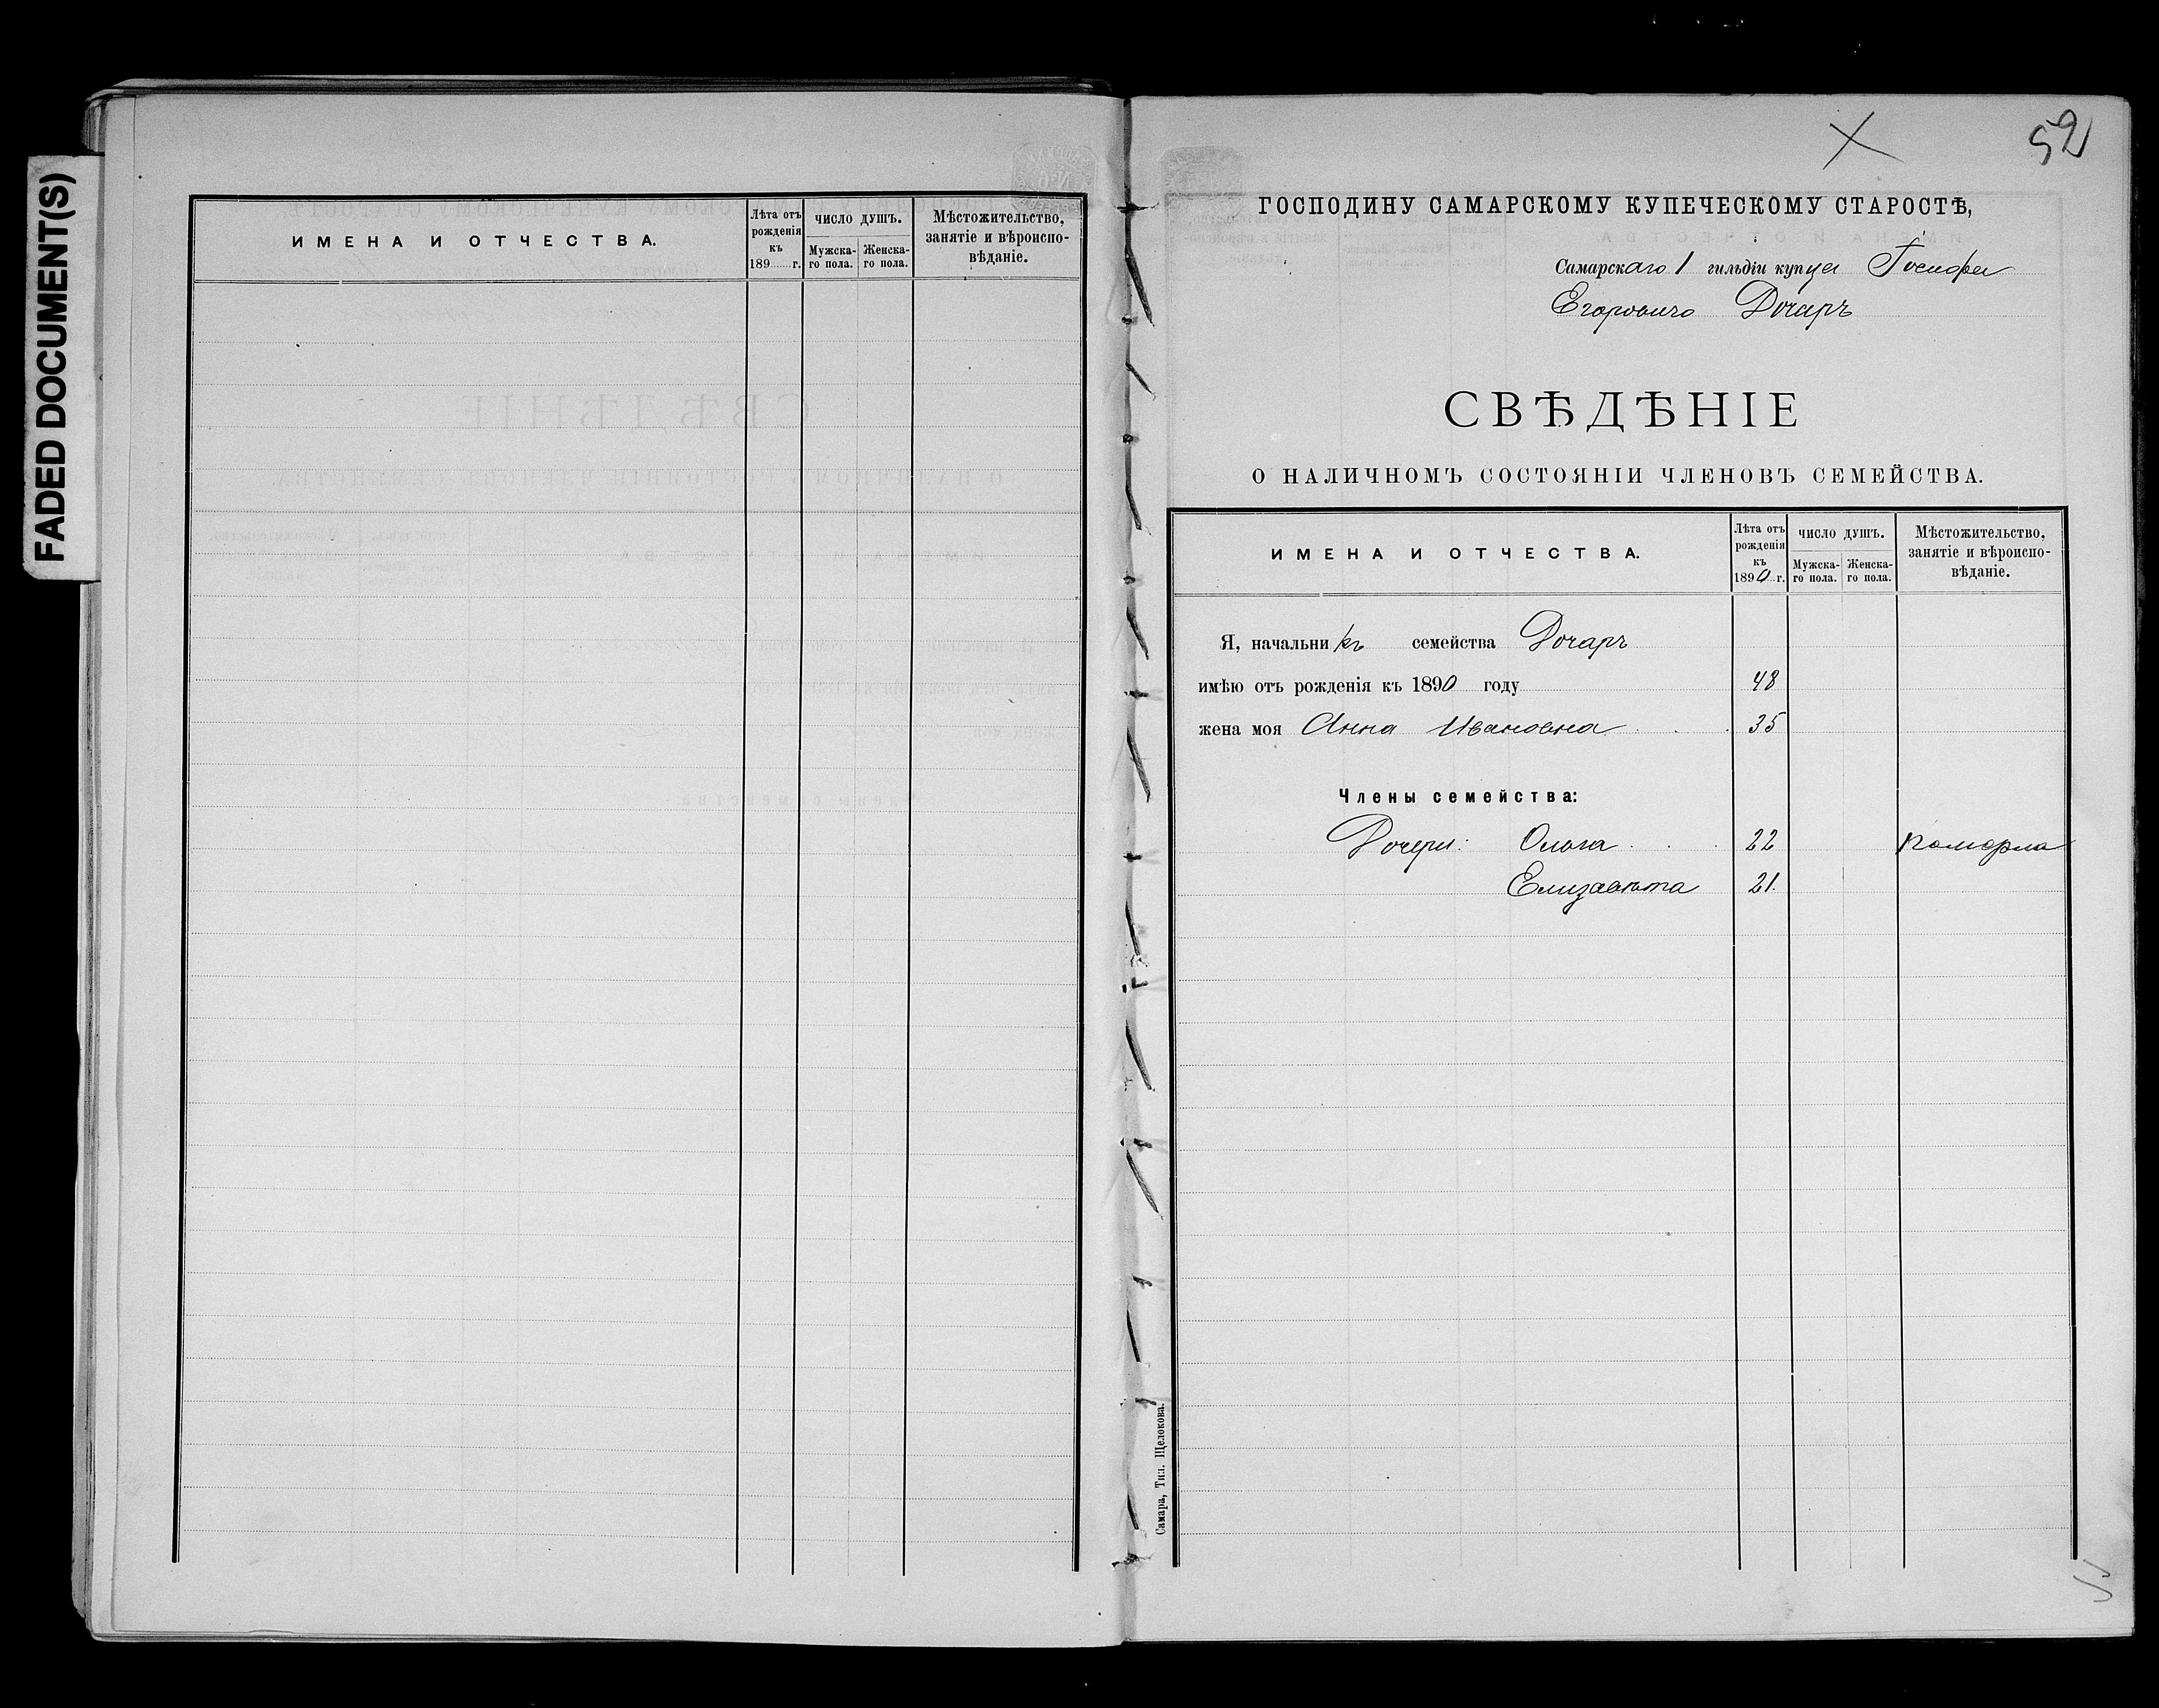 FADED DOCUMENT(S)
ИМЕНА И ОТЧЕСТВА.
Лѣта отъ рожденія къ 189 г.
ЧИСЛО ДУШЪ.
Мужска-го пола.
Женска-го пола.
Мѣстожительство, занятіе и вѣроиспо-вѣданіе.
52
ГОСПОДИНУ САМАРСКОМУ КУПЕЧЕСКОМУ СТАРОСТѢ,
Самарскаго 1 гильдіи купца
Егоровича Дочаръ
СВѢДѢНІЕ
О НАЛИЧНОМЪ СОСТОЯНІИ ЧЛЕНОВЪ СЕМЕЙСТВА.
ИМЕНА И ОТЧЕСТВА.
Лѣта отъ рожденія къ 1890 г.
ЧИСЛО ДУШЪ.
Мужска-го пола.
Женска-го пола.
Мѣстожительство, занятіе и вѣроиспо-вѣданіе.
Я, начальникъ семейства Дочаръ
имѣю отъ рожденія къ 1890 году 48
жена моя Анна Ивановна 35
Члены семейства:
Дочери: Ольга 22
Елизавѣта 21.
Самара, Тип. Щелокова.